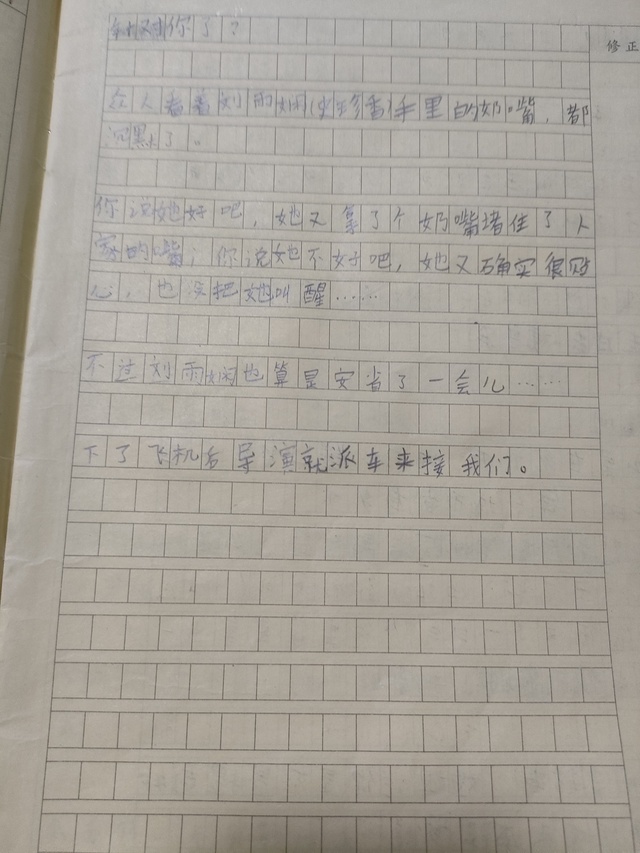 你了？
修正
众人看着刘雨娴手里的奶嘴，都
沉默了。
你说她好吧，她又拿了个奶嘴堵住了人
家的嘴；你说她不好吧，她又确实很贴
心，也没把她叫醒……
不过刘雨娴也算是安省了一会儿……
下了飞机后导演就派车来接我们。